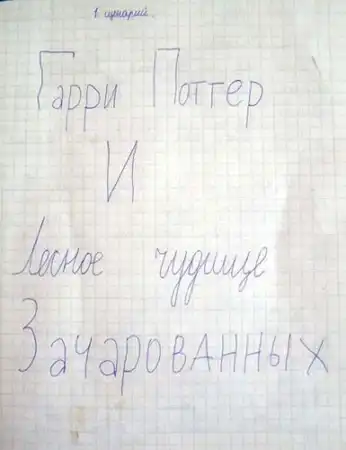 1 сценарий.
Гарри Поттер
И
лесное чудище
Зачарованных